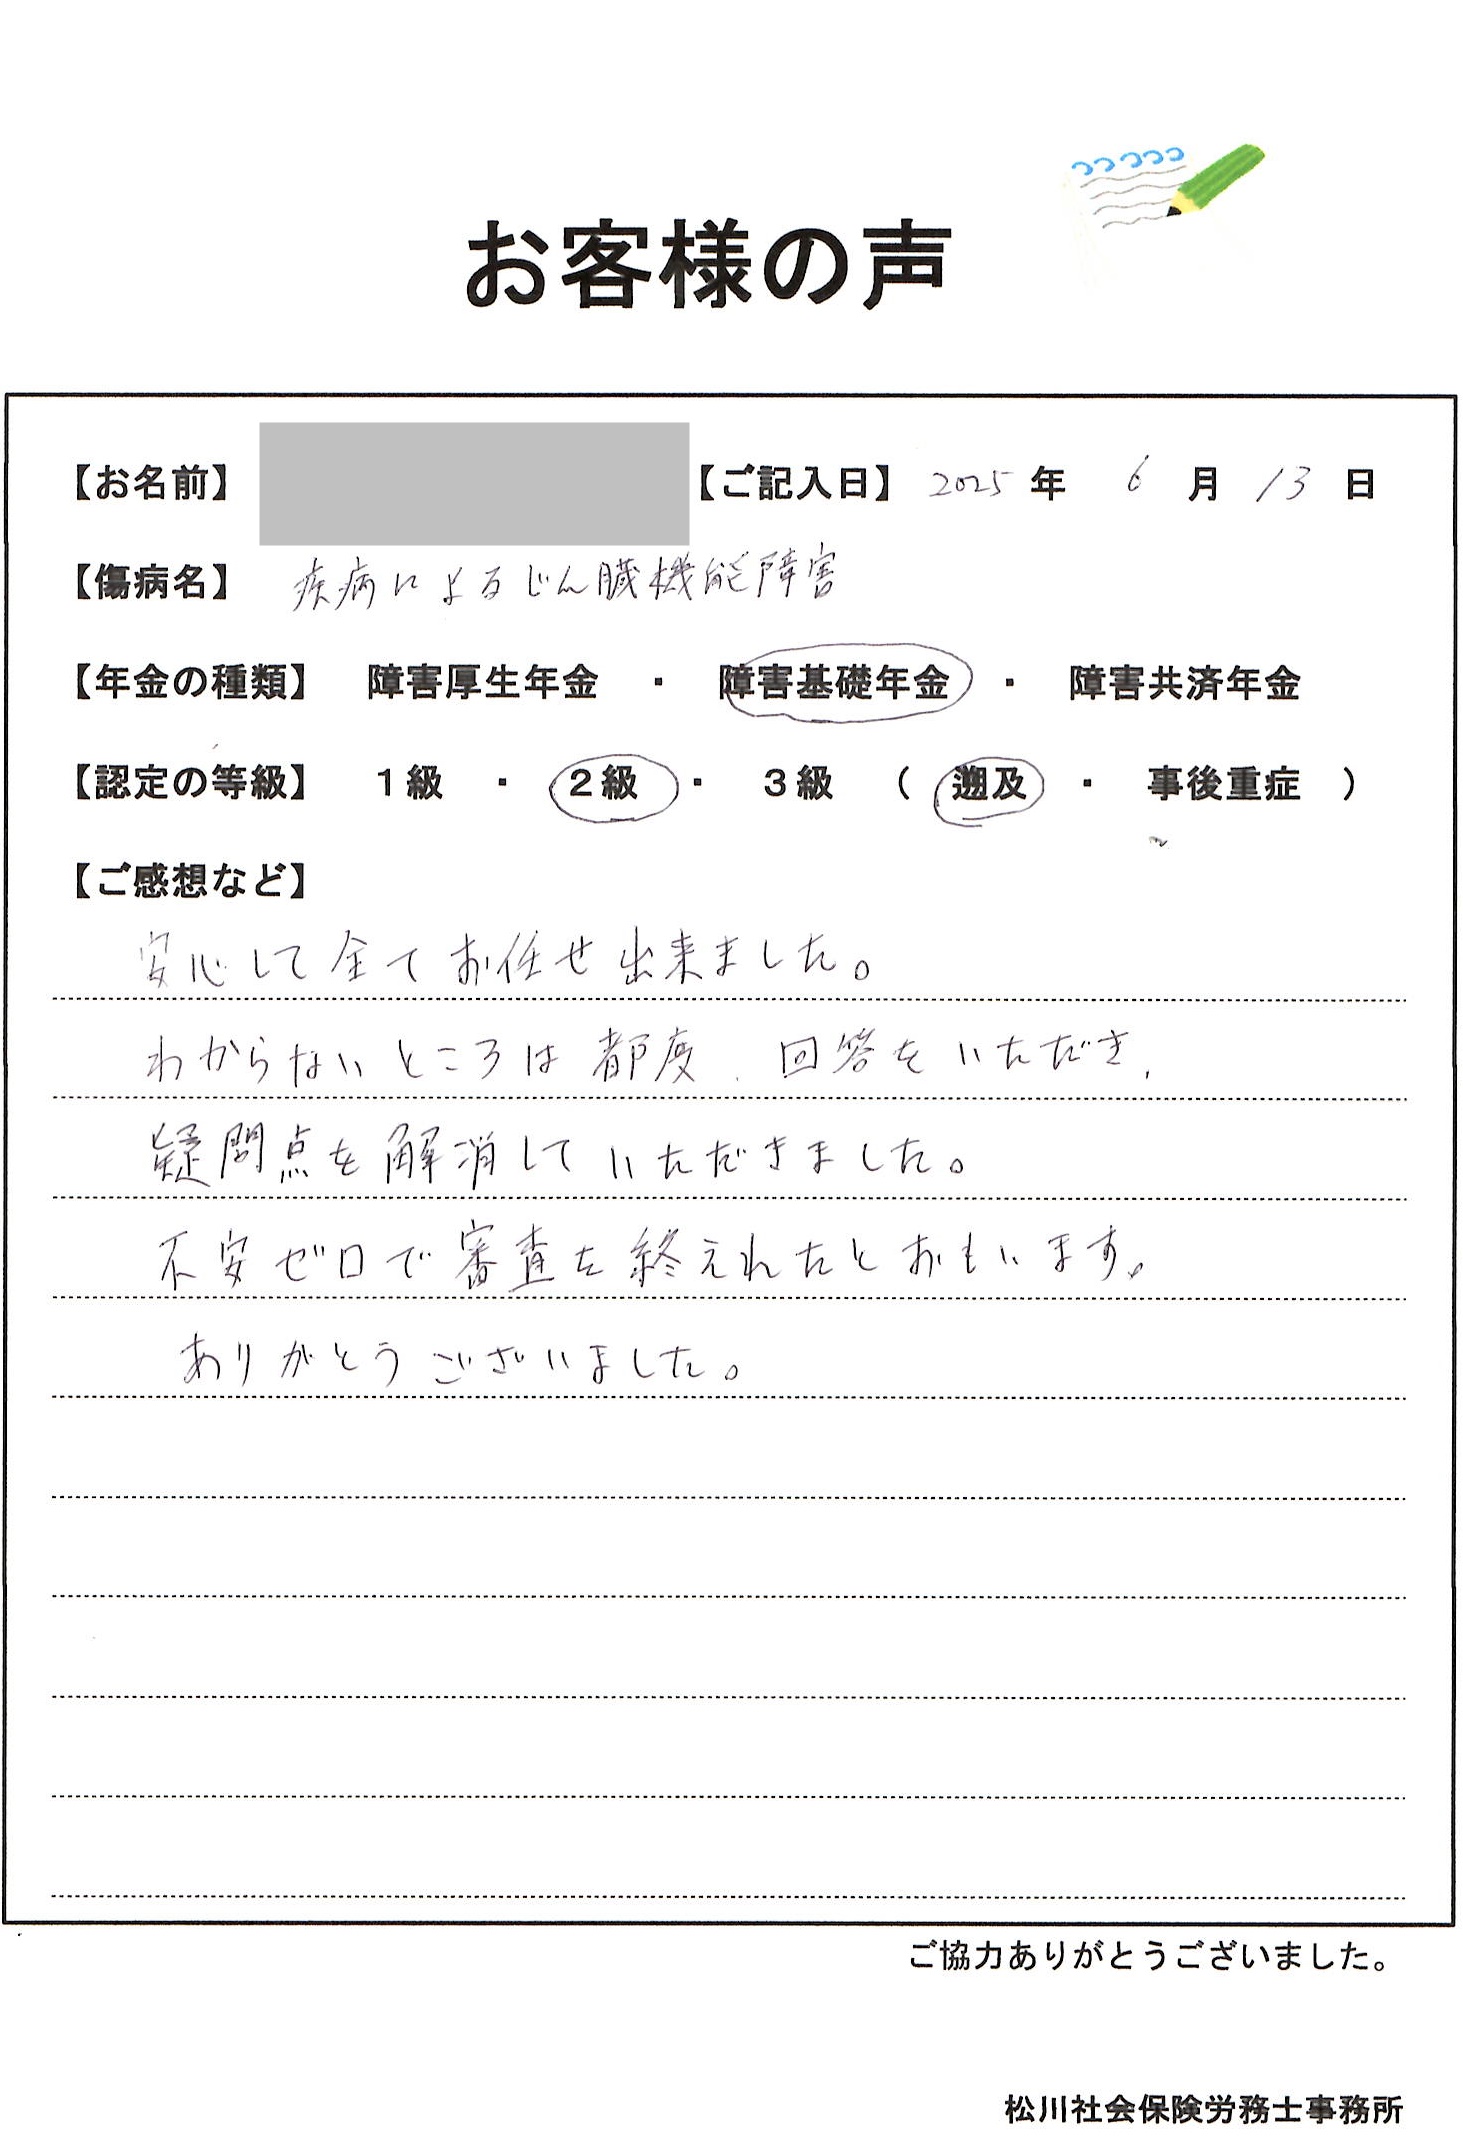 お客様の声
【お名前】 【ご記入日】 2025 年 6 月 13 日
【傷病名】 疾病によるじん臓機能障害
【年金の種類】 障害厚生年金 ・ 障害基礎年金 ・ 障害共済年金
【認定の等級】 1級 ・ 2級 ・ 3級 ( 遡及 ・ 事後重症 )
【ご感想など】
安心して全てお任せ出来ました。
わからないところは都度、回答をいただき、
疑問点を解消していただきました。
不安ゼロで審査を終えれたとおもいます。
ありがとうございました。
ご協力ありがとうございました。
松川社会保険労務士事務所